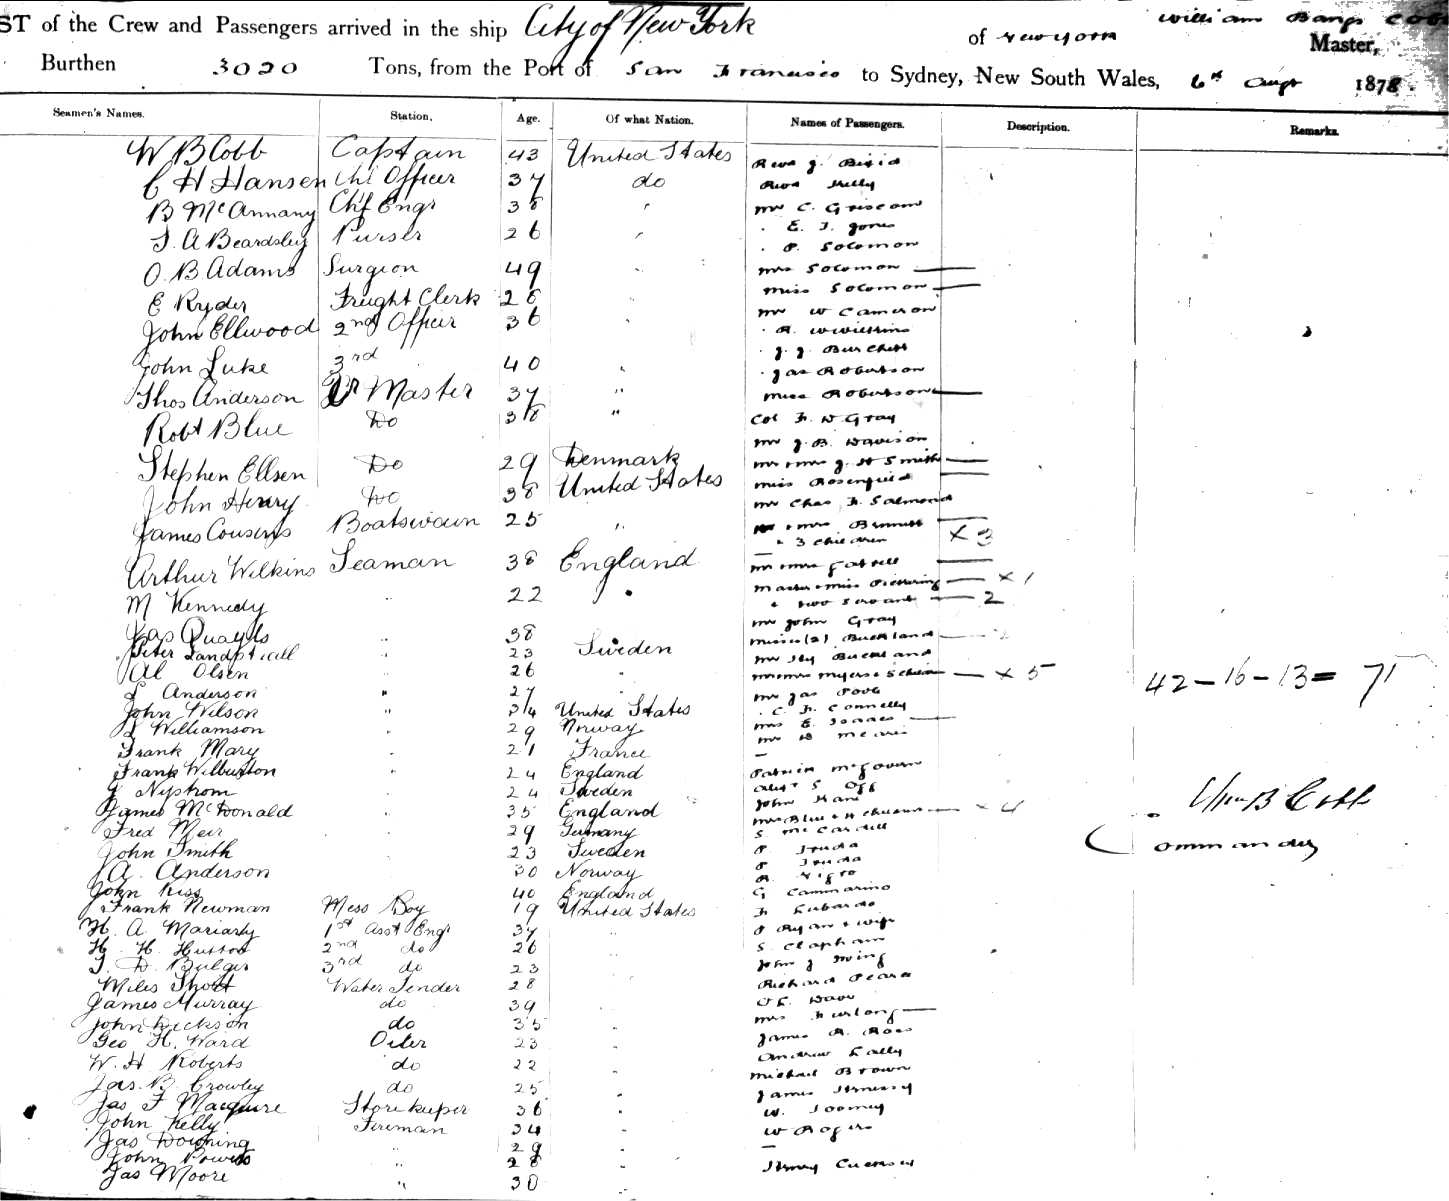 ST of the Crew and Passengers arrived in the ship City of New York of New York William Bangs Cobb Master,
Burthen 3020 Tons, from the Port of San Francisco to Sydney, New South Wales, 6th Augt 1878.
Seamen's Names. Station. Age. Of what Nation. Names of Passengers. Description. Remarks.
W B Cobb Captain 43 United States
C H Hansen Chf Officer 37 do Revd Kelly
B McAnnany Chf Engr 38 " Mr C. Griscom
T. A Beardsley Purser 26 " " E. T. Jones
" P. Solomon
O. B Adams Surgeon 49 " Mrs Solomon —
E Ryder Freight Clerk 28 " Miss Solomon —
John Ellwood 2nd Officer 36 " Mr W Cameron
" R. W Wilkins
John Luke 3rd 40 " " J. J. Burchett
" Jas Robertson
Thos Anderson Qr Master 37 " Miss Robertson —
Robt Blue Do 38 " Col F. W Gray
Mr J. B. Davison
Stephen Ellsen Do 29 Denmark Mr & Mrs J. H Smith —
John Henry Do 38 United States Miss Rosenfield —
Mr Chas. F. Salmond
James Cousens Boatswain 25 " & Mrs Bennett —
& 3 children x 3
Arthur Wilkins Seaman 38 England —
M Kennedy " 22 " Master & Miss Pickering — x 1
& two servants — 2
Mr John Gray
Jas Quayle " 38 Misses (2) Buckland — 2
Peter " 23 Sweden Mr Hy Buckland
Al Olsen " 26 " — x 5
L Anderson " 27 Mr Jas
John Wilson " 34 United States " C. F. Connelly
L Williamson " 29 Norway Mrs E. Isaacs —
Frank Mary " 21 France —
Frank Wilburton " 24 England Patrick McGovern
J Nystrom " 24 Sweden
James McDonald " 35 England — x 4
Fred Meir " 29 Germany S McCardell
John Smith " 23 Sweden
A. Anderson 30 Norway
John Kiss 40 England G Cammarino
Frank Newman Mess Boy 19 United States F Lubardo
H. A. Moriarty 1st Asst Engr 37 " P Ryan & wife
H. H. Hutton 2nd do 26 S. Clapham
T. D. Bulger 3rd do 23 " John J Irving
Miles Short Water Tender 28
James Murray do 39 "
John Dickson do 35 " Mrs Furlong —
Geo H. Ward Oiler 23 " James R. Ross
W. H Roberts do 22 Andrew Lally
Jas. B. Crowley do 25 " Michael Brown
Jas F Macguire Storekeeper 36 " James Hennessy
John Kelly Fireman 34 " W. Toomey
Jas Downing 29 " W Rogers
John Powers " 28 " —
Jas Moore " 30 " Henry
42 – 16 – 13 = 71
Wm B Cobb
Commander